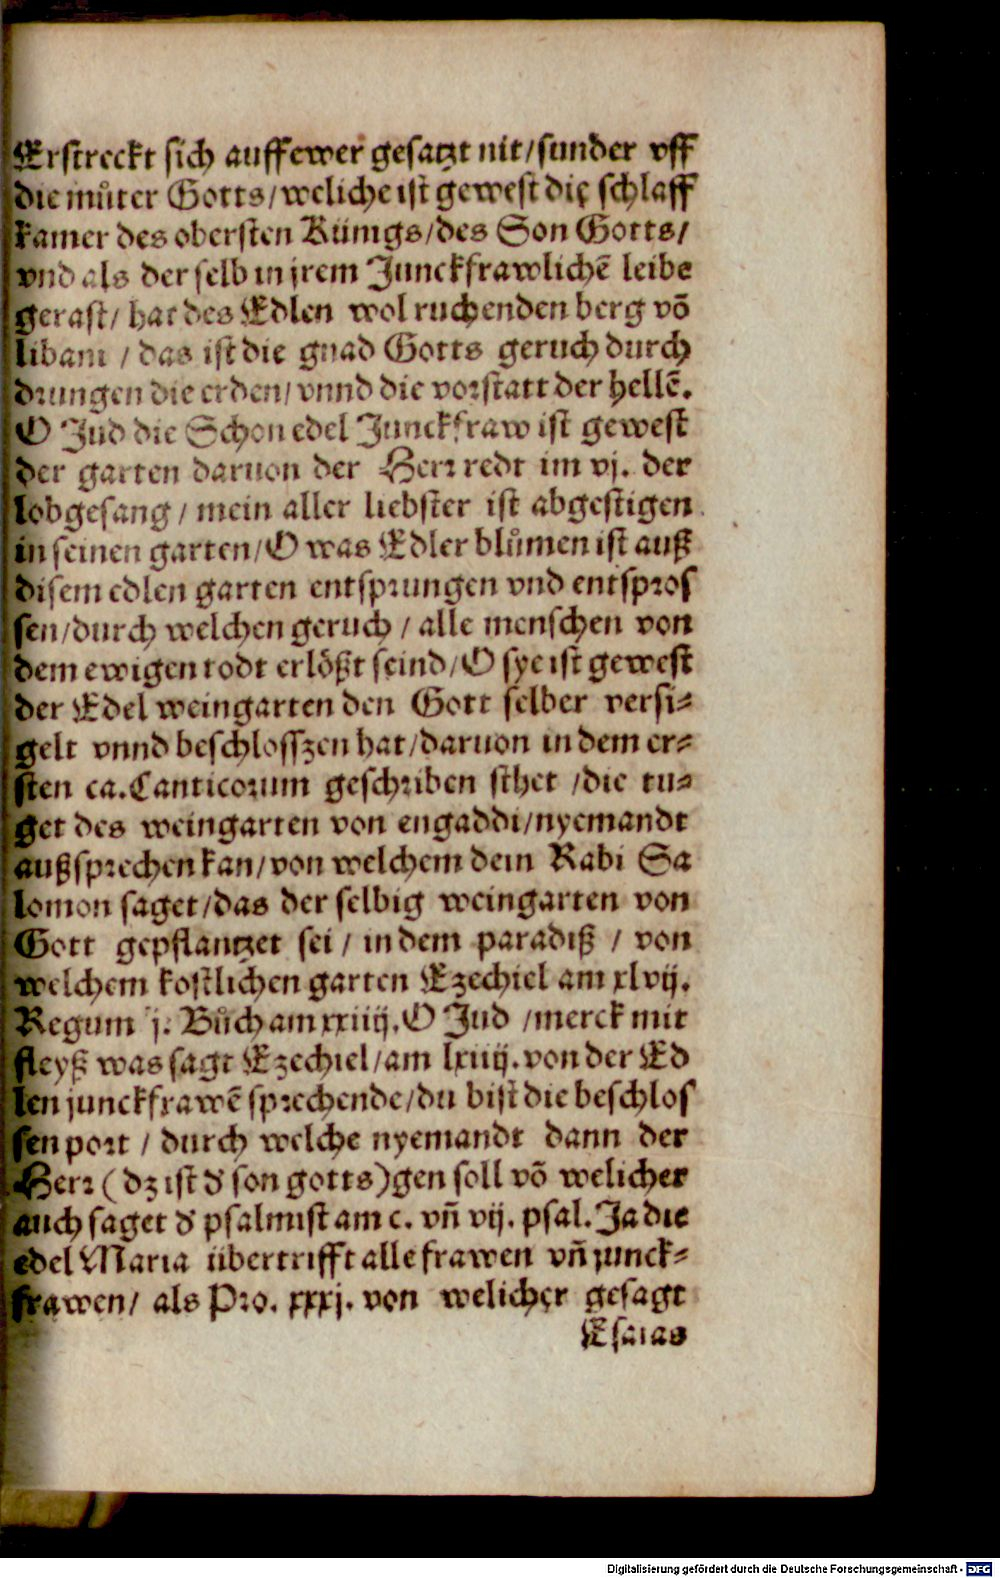 Erstreckt sich auff ewer gesatzt nit/sunder vff
die můter Gotts/weliche ist gewest die schlaff
kamer des obersten Künigs/des Son Gotts/
vnd als der selb in jrem Junckfrawlichē leibe
gerast/ hat des Edlen wol ruchenden berg vō
libani / das ist die gnad Gotts geruch durch
drungen die erden/ vnnd die vorstatt der hellē.
O Jud die Schon edel Junckfraw ist gewest
der garten daruon der Herr redt im vj. der
lobgesang / mein aller liebster ist abgestigen
in seinen garten/O was Edler blůmen ist auß
disem edlen garten entsprungen vnd entspros
sen/durch welchen geruch / alle menschen von
dem ewigen todt erlößt seind/O sye ist gewest
der Edel weingarten den Gott selber versi-
gelt vnnd beschlosszen hat/daruon in dem er-
sten ca. Canticorum geschriben sthet /die tu-
get des weingarten von engaddi/nyemandt
außsprechen kan/von welchem dein Rabi Sa
lomon saget/das der selbig weingarten von
Gott gepflantzet sei / in dem paradiß / von
welchem kostlichen garten Ezechiel am xlvij.
Regum j. Bůch am xxiiij. O Jud /merck mit
fleyß was sagt Ezechiel/am lxiiij. von der Ed
len junckfrawē sprechende/du bist die beschlos
sen port / durch welche nyemandt dann der
Herr (dz ist d' son gotts)gen soll vō welicher
auch saget d' psalmist am c. vn̄ vij. psal. Ja die
edel Maria übertrifft alle frawen vn̄ junck-
frawen/ als Pro. xxxj. von welicher gesagt
Esaias
Digitalisierung gefördert durch die Deutsche Forschungsgemeinschaft - DFG